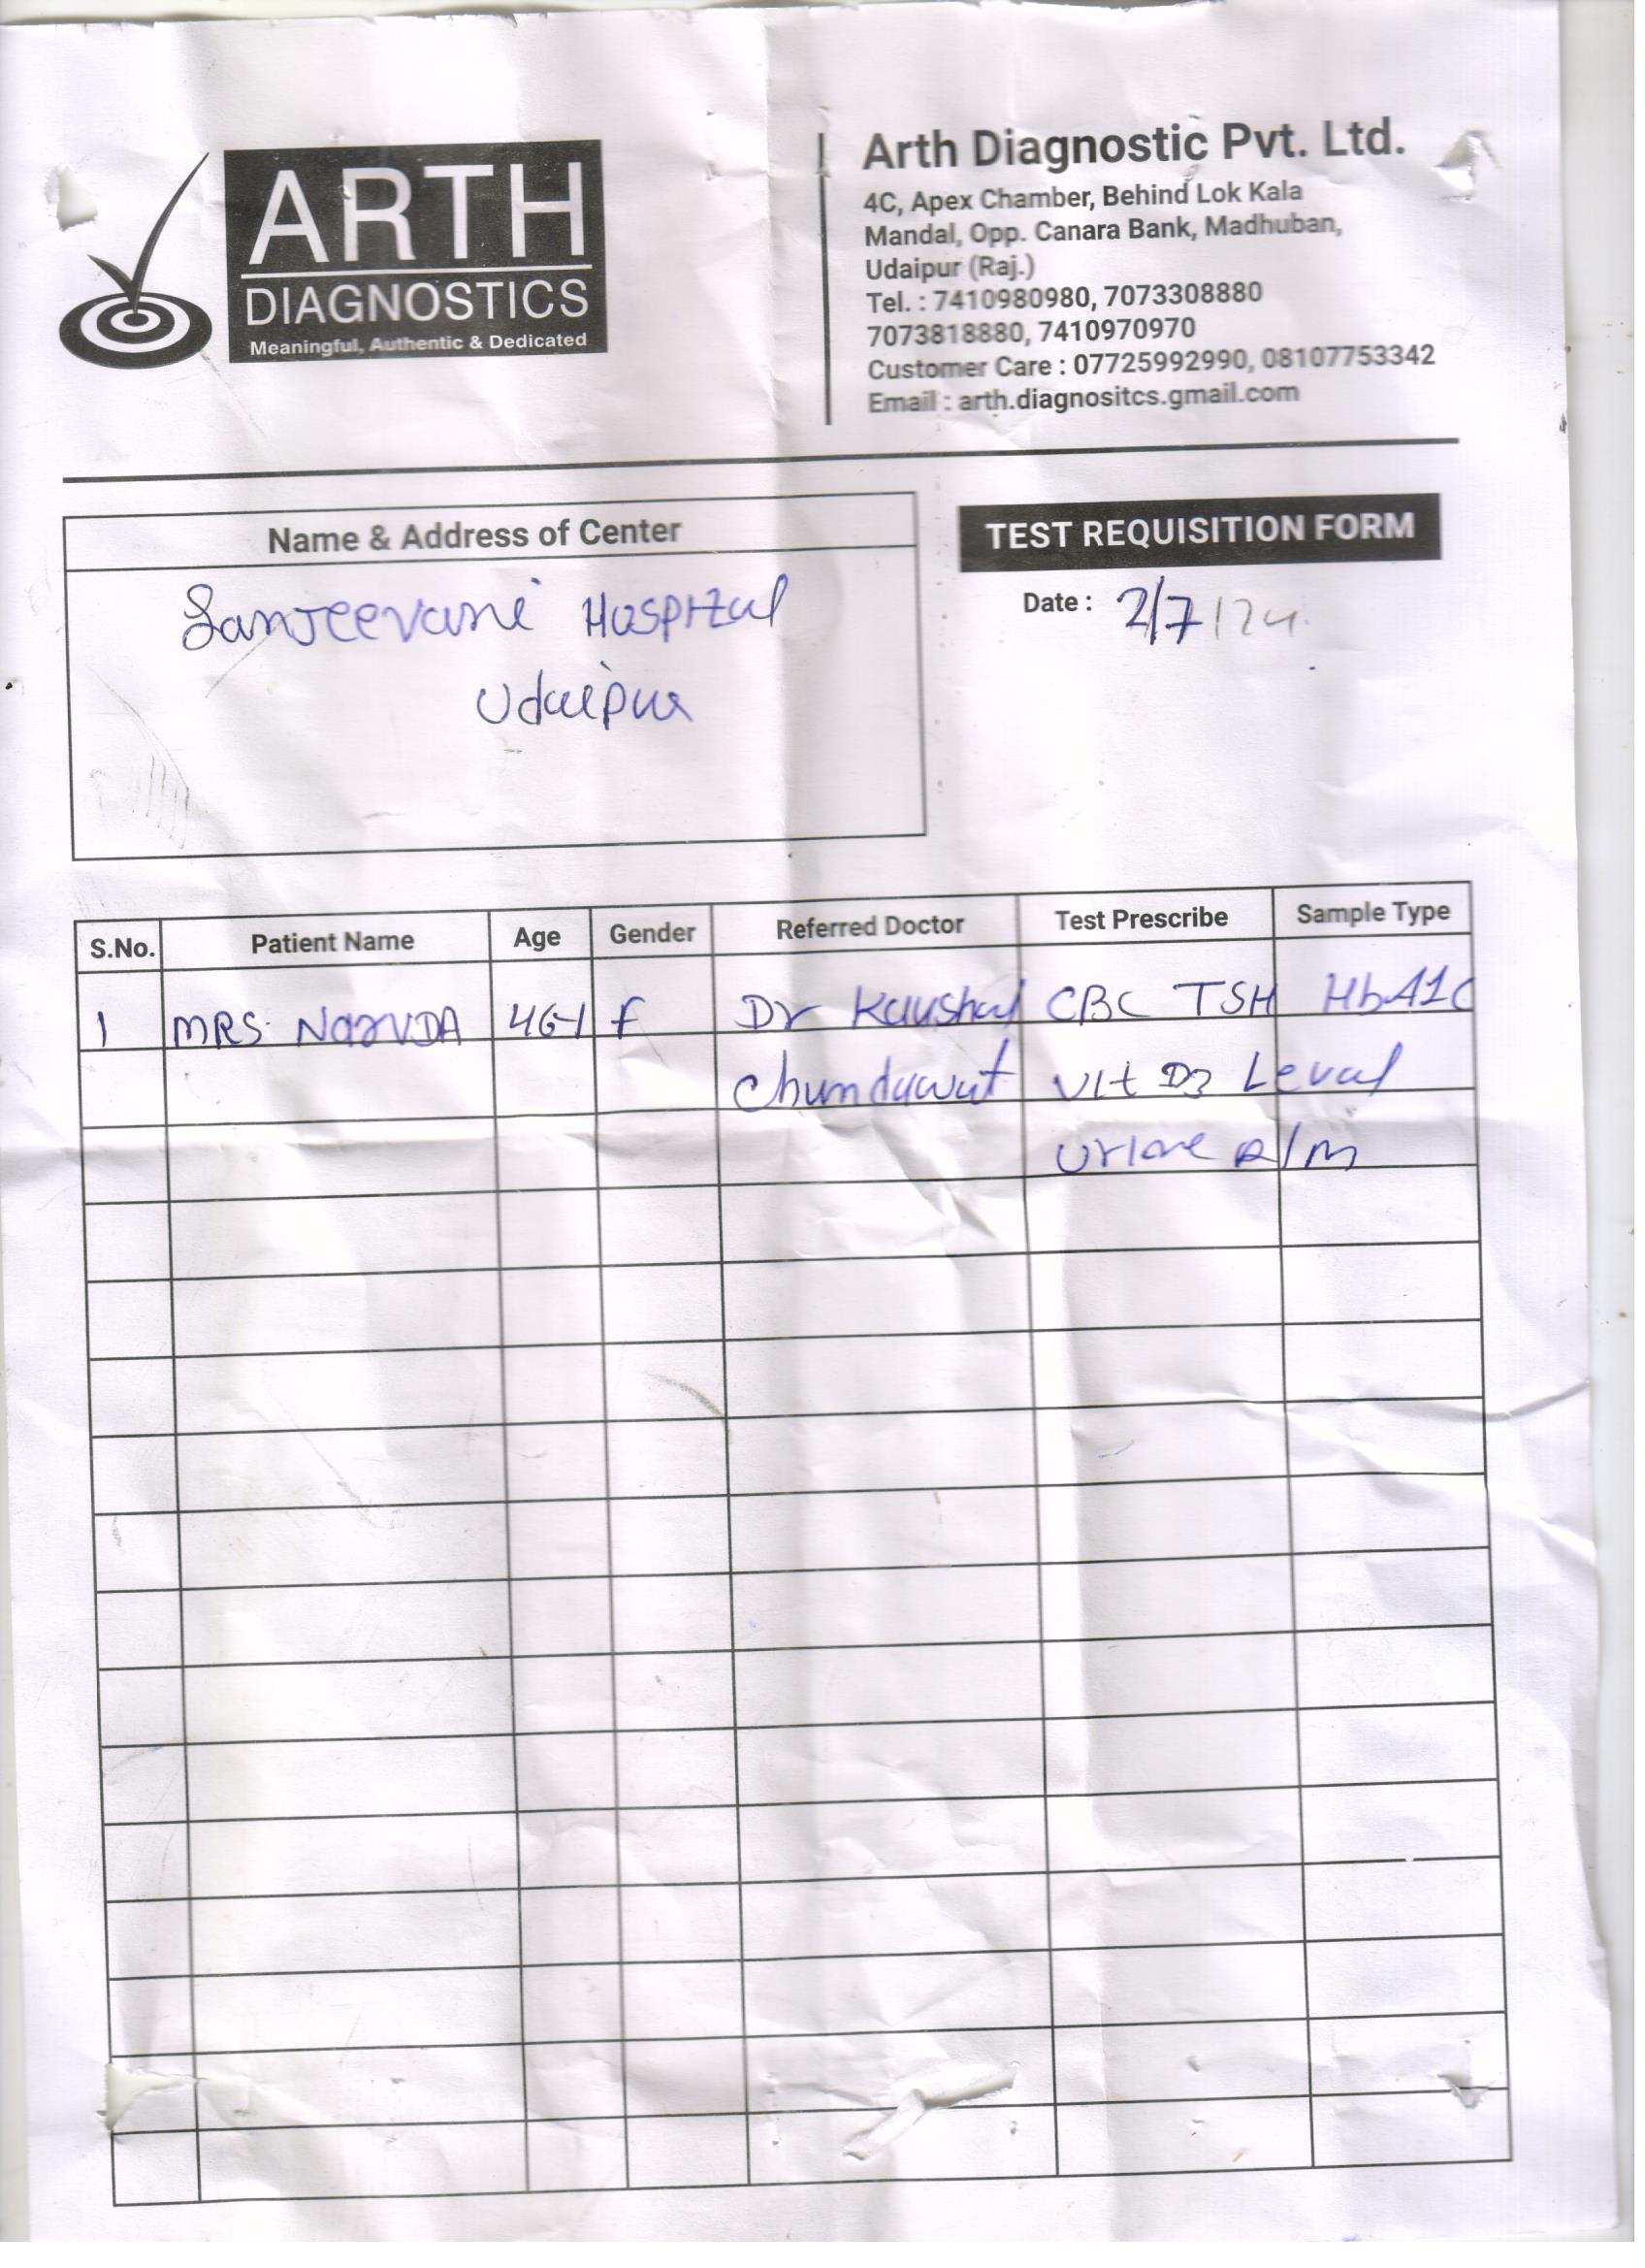 ARTH
DIAGNOSTICS
Meaningful, Authentic & Dedicated
Arth Diagnostic Pvt. Ltd.
4C, Apex Chamber, Behind Lok Kala
Mandal, Opp. Canara Bank, Madhuban,
Udaipur (Raj.)
Tel. : 7410980980, 7073308880
7073818880, 7410970970
Customer Care : 07725992990, 08107753342
Email : arth.diagnositcs.gmail.com
Name & Address of Center
Sanjeevani Hospital
Udaipur
TEST REQUISITION FORM
Date : 2/7/24
S.No. Patient Name Age Gender Referred Doctor Test Prescribe Sample Type
1 MRS. F Dr Kaushal CBC TSH HbA1C
Chundawat Vit D3 Leval
Urine R/M